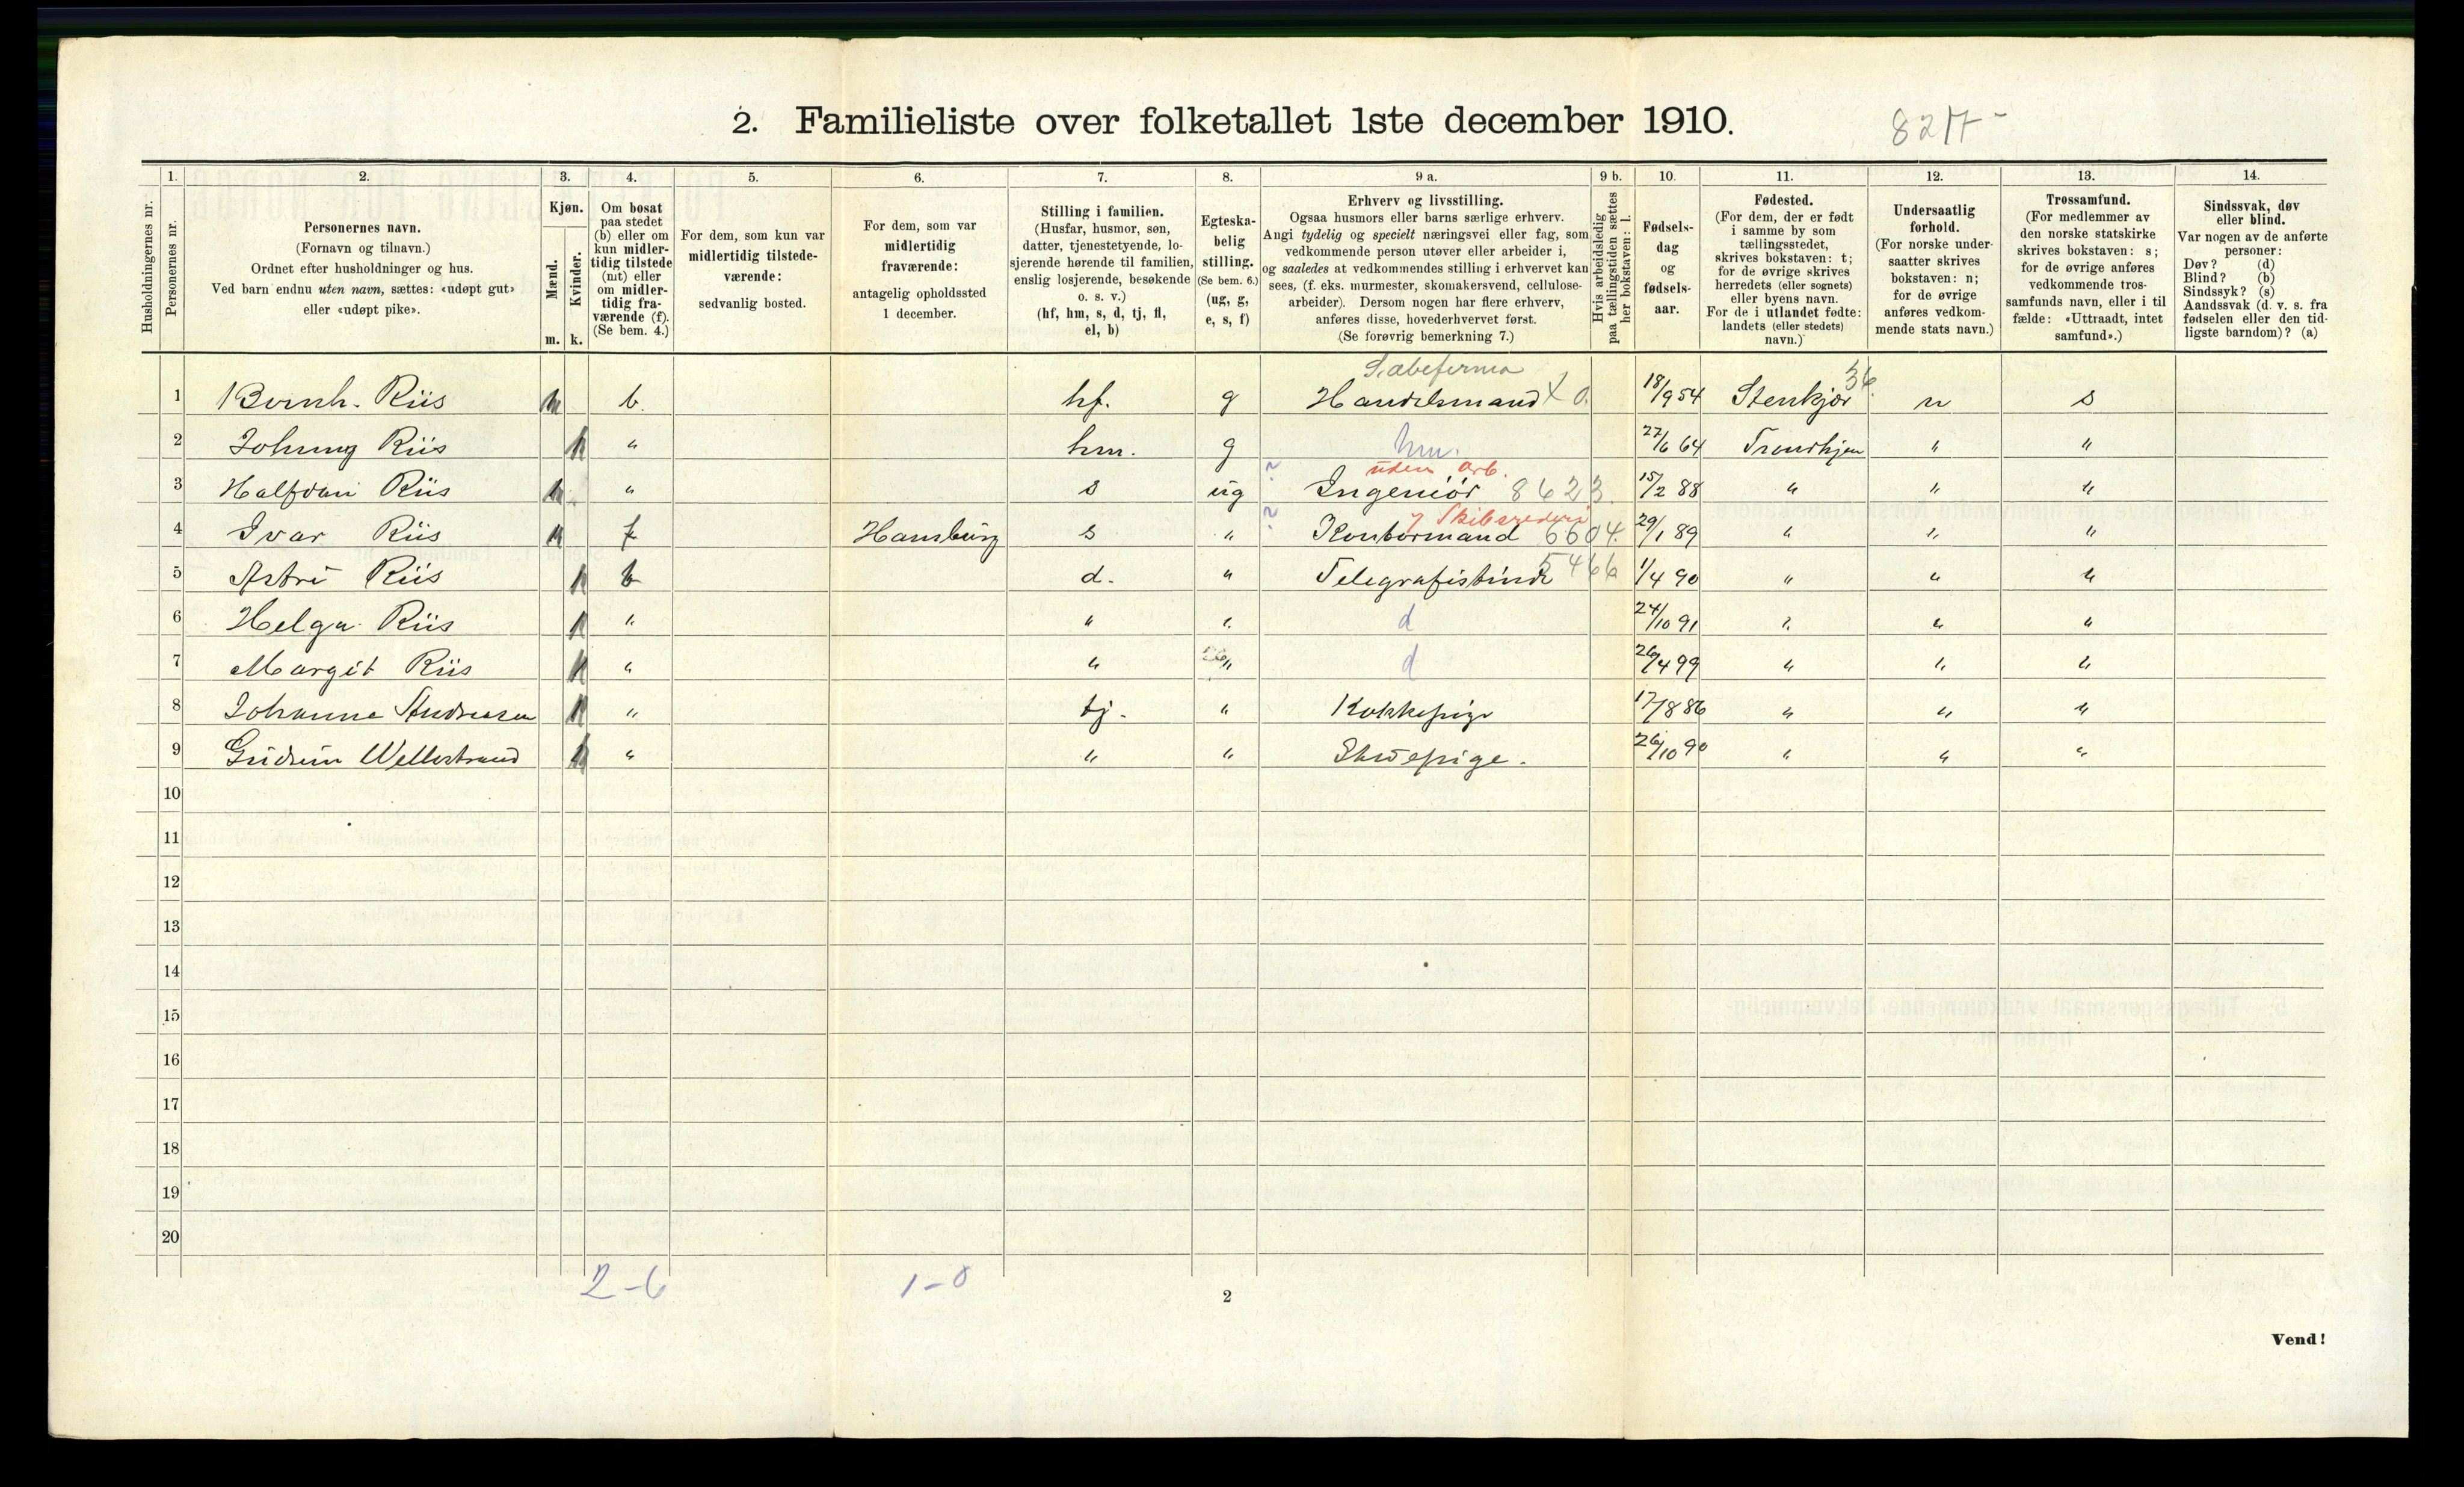 2. Familieliste over folketallet 1ste december 1910.
82
Husholdningernes nr.
1.
Personernes nr.
2.
Personernes navn.
(Fornavn og tilnavn.)
Ordnet efter husholdninger og hus.
Ved barn endnu uten navn, sættes: «udøpt gut»
eller «udøpt pike».
3.
Kjøn.
Mænd.
Kvinder.
m. k.
4.
Om bosat
paa stedet
(b) eller om
kun midler-
tidig tilstede
(mt) eller
om midler-
tidig fra-
værende (f).
(Se bem. 4.)
5.
For dem, som kun var
midlertidig tilstede-
værende:
sedvanlig bosted.
6.
For dem, som var
midlertidig
fraværende:
antagelig opholdssted
1 december.
7.
Stilling i familien.
(Husfar, husmor, søn,
datter, tjenestetyende, lo-
sjerende hørende til familien,
enslig losjerende, besøkende
o. s. v.)
(hf, hm, s, d, tj, fl,
el, b)
8.
Egteska-
belig
stilling.
(Se bem. 6.)
(ug, g,
e, s, f)
9 a.
Erhverv og livsstilling.
Ogsaa husmors eller barns særlige erhverv.
Angi tydelig og specielt næringsvei eller fag, som
vedkommende person utøver eller arbeider i,
og saaledes at vedkommendes stilling i erhvervet kan
sees, (f. eks. murmester, skomakersvend, cellulose-
arbeider). Dersom nogen har flere erhverv,
anføres disse, hovederhvervet først.
(Se forøvrig bemerkning 7.)
9 b.
Hvis arbeidsledig
paa tællingstiden sættes
her bokstaven: l.
10.
Fødsels-
dag
og
fødsels-
aar.
11.
Fødested.
(For dem, der er født
i samme by som
tællingsstedet,
skrives bokstaven: t;
for de øvrige skrives
herredets (eller sognets)
eller byens navn.
For de i utlandet fødte:
landets (eller stedets)
navn.)
12.
Undersaatlig
forhold.
(For norske under-
saatter skrives
bokstaven: n;
for de øvrige
anføres vedkom-
mende stats navn.)
13.
Trossamfund.
(For medlemmer av
den norske statskirke
skrives bokstaven: s;
for de øvrige anføres
vedkommende tros-
samfunds navn, eller i til
fælde: «Uttraadt, intet
samfund».)
14.
Sindssvak, døv
eller blind.
Var nogen av de anførte
personer:
Døv? (d)
Blind? (b)
Sindssyk? (s)
Aandssvak (d. v. s. fra
fødselen eller den tid-
ligste barndom)? (a)
1 Bernh. Riis m b. hf. g Handelsmand X 0. 18/9 54 Stenkjær 36. n s
2 Johnny Riis k " hm. g hm. 27/6 64 Trondhjem " "
uden arb.
3 Halfdan Riis m " s ug ? Ingeniør 8623. 15/2 88 " " "
Skibsrederi
4 Ivar Riis m f Hamburg s " ? Kontormand 6604. 29/1 89 " " "
5 Astri Riis k b d. " Telegrafistinde 5466 1/4 90 " " "
6 Helga Riis k " " " d 24/10 91 " " "
7 Margit Riis k " " " d 26/4 99 " " "
8 Johanne Andreasen k " tj. " Kokkepige 17/8 86 " " "
9 Gudrun Wellestrand k " " " Stuepige. 26/10 90 " " "
10
11
12
13
14
15
16
17
18
19
20
2-6 1-0
2
Vend!